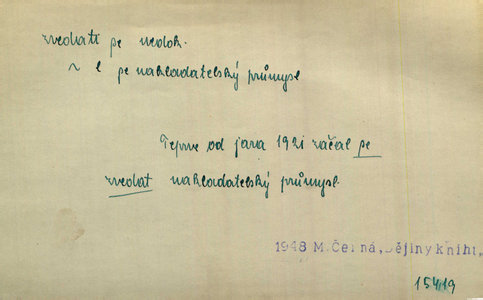 zvedati se nedok.
~ l se nakladatelský průmysl
Teprve od jara 1921 začal se
zvedat nakladatelský průmysl.
1948 M.Černá,Dějiny kniht.,
154/19